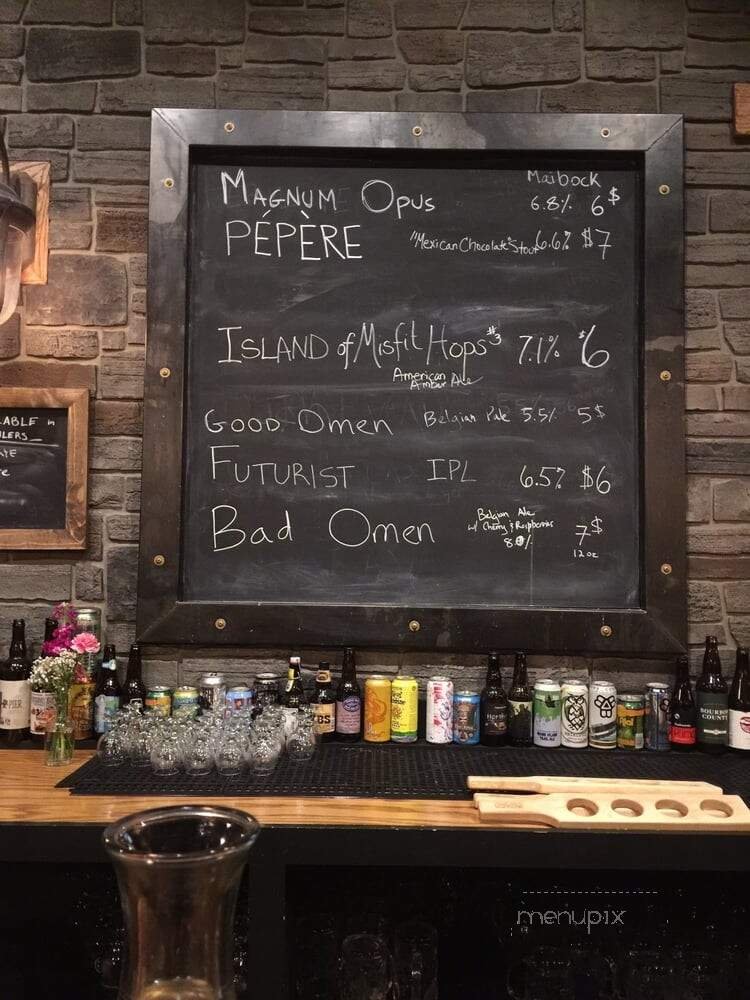 Maibock
MAGNUM OPUS 6.8% 6$
PÉPÈRE "Mexican Chocolate" Stout 6.6% $7
ISLAND of Misfit Hops #3 7.1% $6
American
Amber Ale
GOOD Omen Belgian Pale 5.5% 5$
FUTURIST IPL 6.5% $6
Bad Omen Belgian Ale
w/ Cherry & Raspberries
8.0% 7$
12oz
LABLE in
LERS
BOURBON
COUNTY
menupix